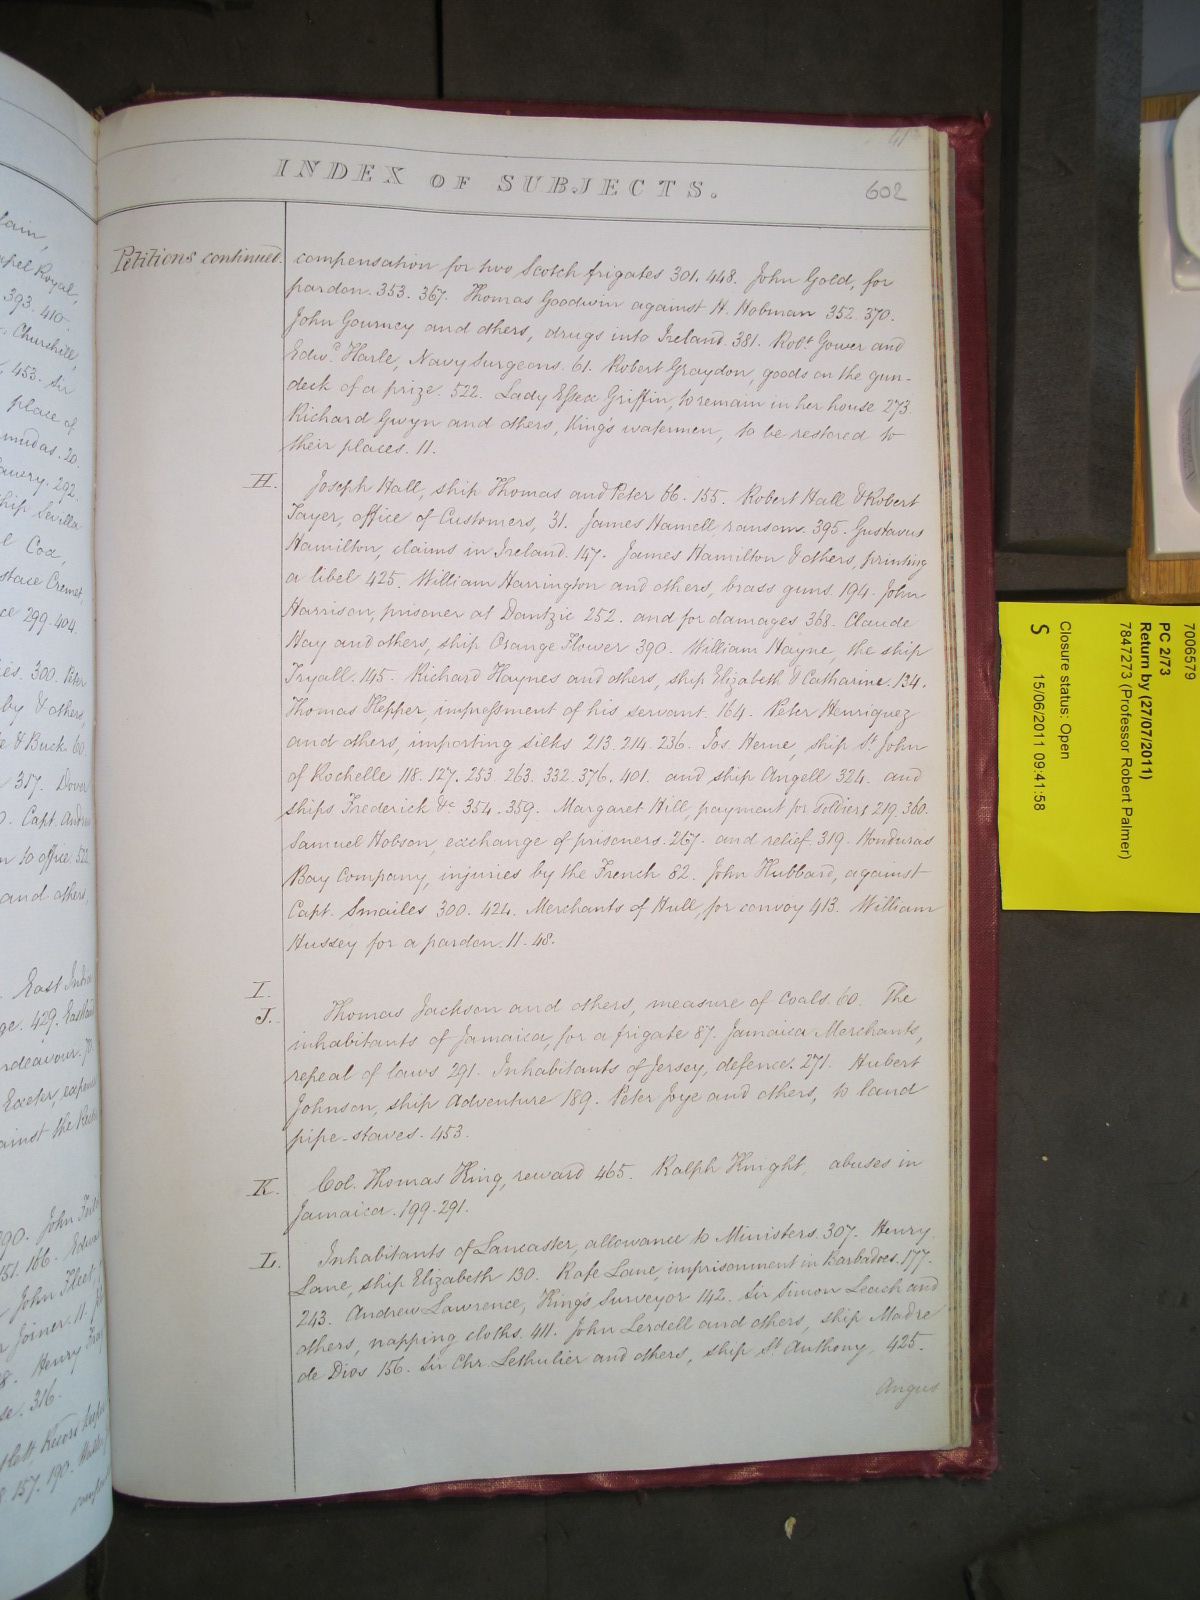 INDEX OF SUBJECTS.
602
Petitions continued.
compensation for two Scotch frigates 301. 448. John Gold, for
pardon. 353. 367. Thomas Goodwin against H. Hobman 352. 370.
John Gourney and others, drugs into Ireland. 381. Robt Gower and
Edwd. Harle, Navy Surgeons. 61. Robert Graydon, goods on the gun-
deck of a prize. 522. Lady Essex Griffin, to remain in her house 273.
Richard Gwyn and others, King's watermen, to be restored to
their places. 11.
H.
Joseph Hall, ship Thomas and Peter 66. 155. Robert Hall & Robert
Tayer, office of Customers, 31. James Hamell ransom. 395. Gustavus
Hamilton, claims in Ireland. 147. James Hamilton & others, printing
a libel 425. William Harrington and others, brass guns. 194. John
Harrison, prisoner at Dantzic 252. and for damages 368. Claude
Hay and others, ship Orange Flower 390. William Hayne, the ship
Tryall. 145. Richard Haynes and others, ship Elizabeth & Catharine. 134.
Thomas Hepper, impressment of his servant. 164. Peter Henriquez
and others, importing silks 213. 214. 236. Jos. Herne, ship St. John
of Rochelle 118. 127. 253. 263. 332. 376. 401. and ship Angell 324. and
ships Frederick &c. 354. 359. Margaret Hill, payment for soldiers 219. 360.
Samuel Hobson, exchange of prisoners. 267. and relief. 319. Honduras
Bay Company, injuries by the French 82. John Hubbard, against
Capt. Smailes 300. 424. Merchants of Hull, for convoy 413. William
Hussey for a pardon. 11. 48.
I.
J.
Thomas Jackson and others, measure of Coals. 60. The
inhabitants of Jamaica, for a frigate 87. Jamaica Merchants,
repeal of laws 291. Inhabitants of Jersey, defence. 271. Hubert
Johnson, ship Adventure 189. Peter Joye and others, to land
pipe-staves. 453.
K.
Col. Thomas King, reward 465. Ralph Knight, abuses in
Jamaica. 199-291.
L.
Inhabitants of Lancaster, allowance to Ministers. 307. Henry
Lane, ship Elizabeth 130. Rafe Lane, imprisonment in Barbadoes. 177.
243. Andrew Lawrence, King's Surveyor 142. Sir Simon Leach and
others, napping cloths. 411. John Lerdell and others, ship Madre
de Dios 156. Sir Chr. Lethulier and others, ship St. Anthony, 425.
Angus
7006579
PC 2/73
Return by (27/07/2011)
7847273 (Professor Robert Palmer)
Closure status: Open
S 15/06/2011 09:41:58